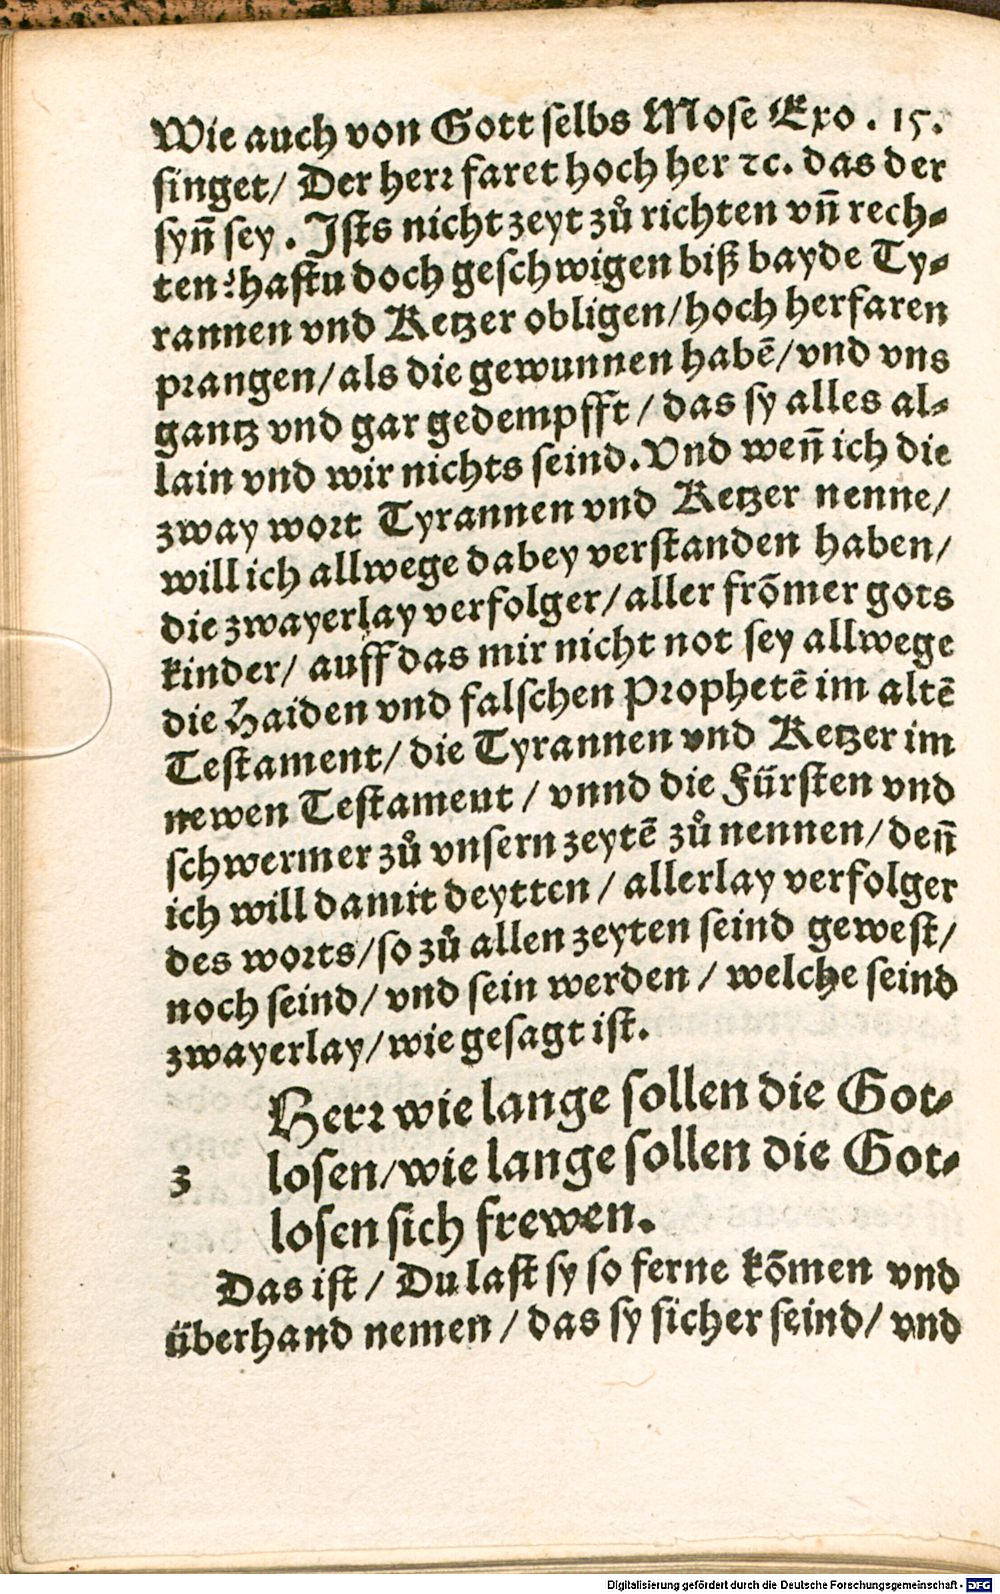 Wie auch von Gott selbs Mose Exo. 15.
singet/ Der herr faret hoch her ꝛc. das der
syñ sey. Ists nicht zeyt zů richten vñ rech⸗
ten? hastu doch geschwigen biß bayde Ty⸗
rannen vnd Ketzer obligen/hoch herfaren
prangen/als die gewunnen habẽ/vnd vns
gantz vnd gar gedempfft/ das sy alles al⸗
lain vnd wir nichts seind. Vnd weñ ich die
zway wort Tyrannen vnd Ketzer nenne/
will ich allwege dabey verstanden haben/
die zwayerlay verfolger/aller frõmer gots
kinder/ auff das mir nicht not sey allwege
die Haiden vnd falschen Prophetẽ im altẽ
Testament/ die Tyrannen vnd Ketzer im
newen Testament/ vnnd die Fürsten vnd
schwermer zů vnsern zeytẽ zů nennen/ deñ
ich will damit deytten/ allerlay verfolger
des worts/so zů allen zeyten seind gewest/
noch seind/ vnd sein werden/ welche seind
zwayerlay/wie gesagt ist.
Herr wie lange sollen die Got⸗
3 losen/wie lange sollen die Got⸗
losen sich frewen.
Das ist/ Du last sy so ferne kõmen vnd
überhand nemen/ das sy sicher seind/ vnd
Digitalisierung gefördert durch die Deutsche Forschungsgemeinschaft - DFG